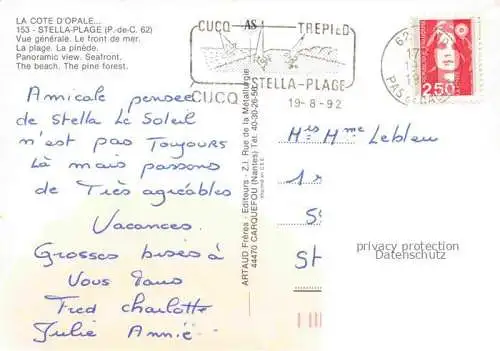 LA COTE D'OPALE...
153 - STELLA-PLAGE (P.-de-C. 62)
Vue générale. Le front de mer.
La plage. La pinède.
Panoramic view. Seafront.
The beach. The pine forest.
CUCQ AS TREPIED
STELLA-PLAGE
CUCQ 19-8-92
62
PAS DE CALAIS
2,50
Amicale pensee
de Stella Le Soleil
n'est pas Toujours
Là mais passons
de Très agréables
Vacances.
Grosses bises à
Vous Tous
Fred charlotte
Julie Annie
ARTAUD Frères - Editeurs - Z.I. Rue de la Métallurgie
44470 CARQUEFOU (Nantes) Tél. 40-30-26-50
Mrs Mme Lebleu
1
S
St
privacy protection
Datenschutz